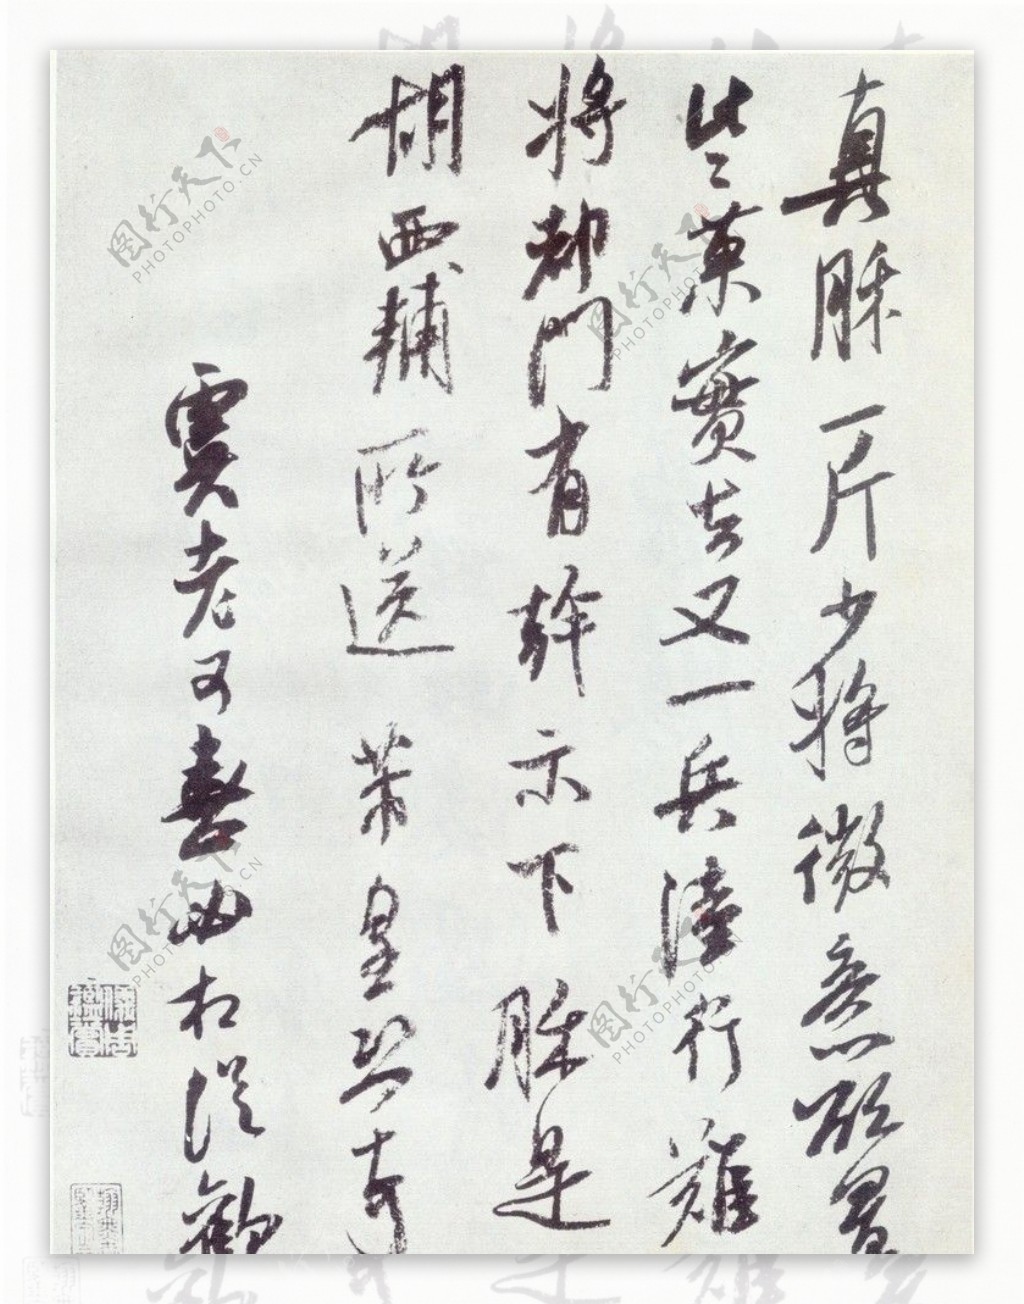 真酥一斤少將微意欲置
些菓實去又一兵陸行難
將都門有幹示下酥是
胡西輔所送芾皇恐
虞老可喜必相從歡
图行天下
PHOTOPHOTO.CN
图行天下
PHOTOPHOTO.CN
图行天下
PHOTOPHOTO.CN
图行天下
PHOTOPHOTO.CN